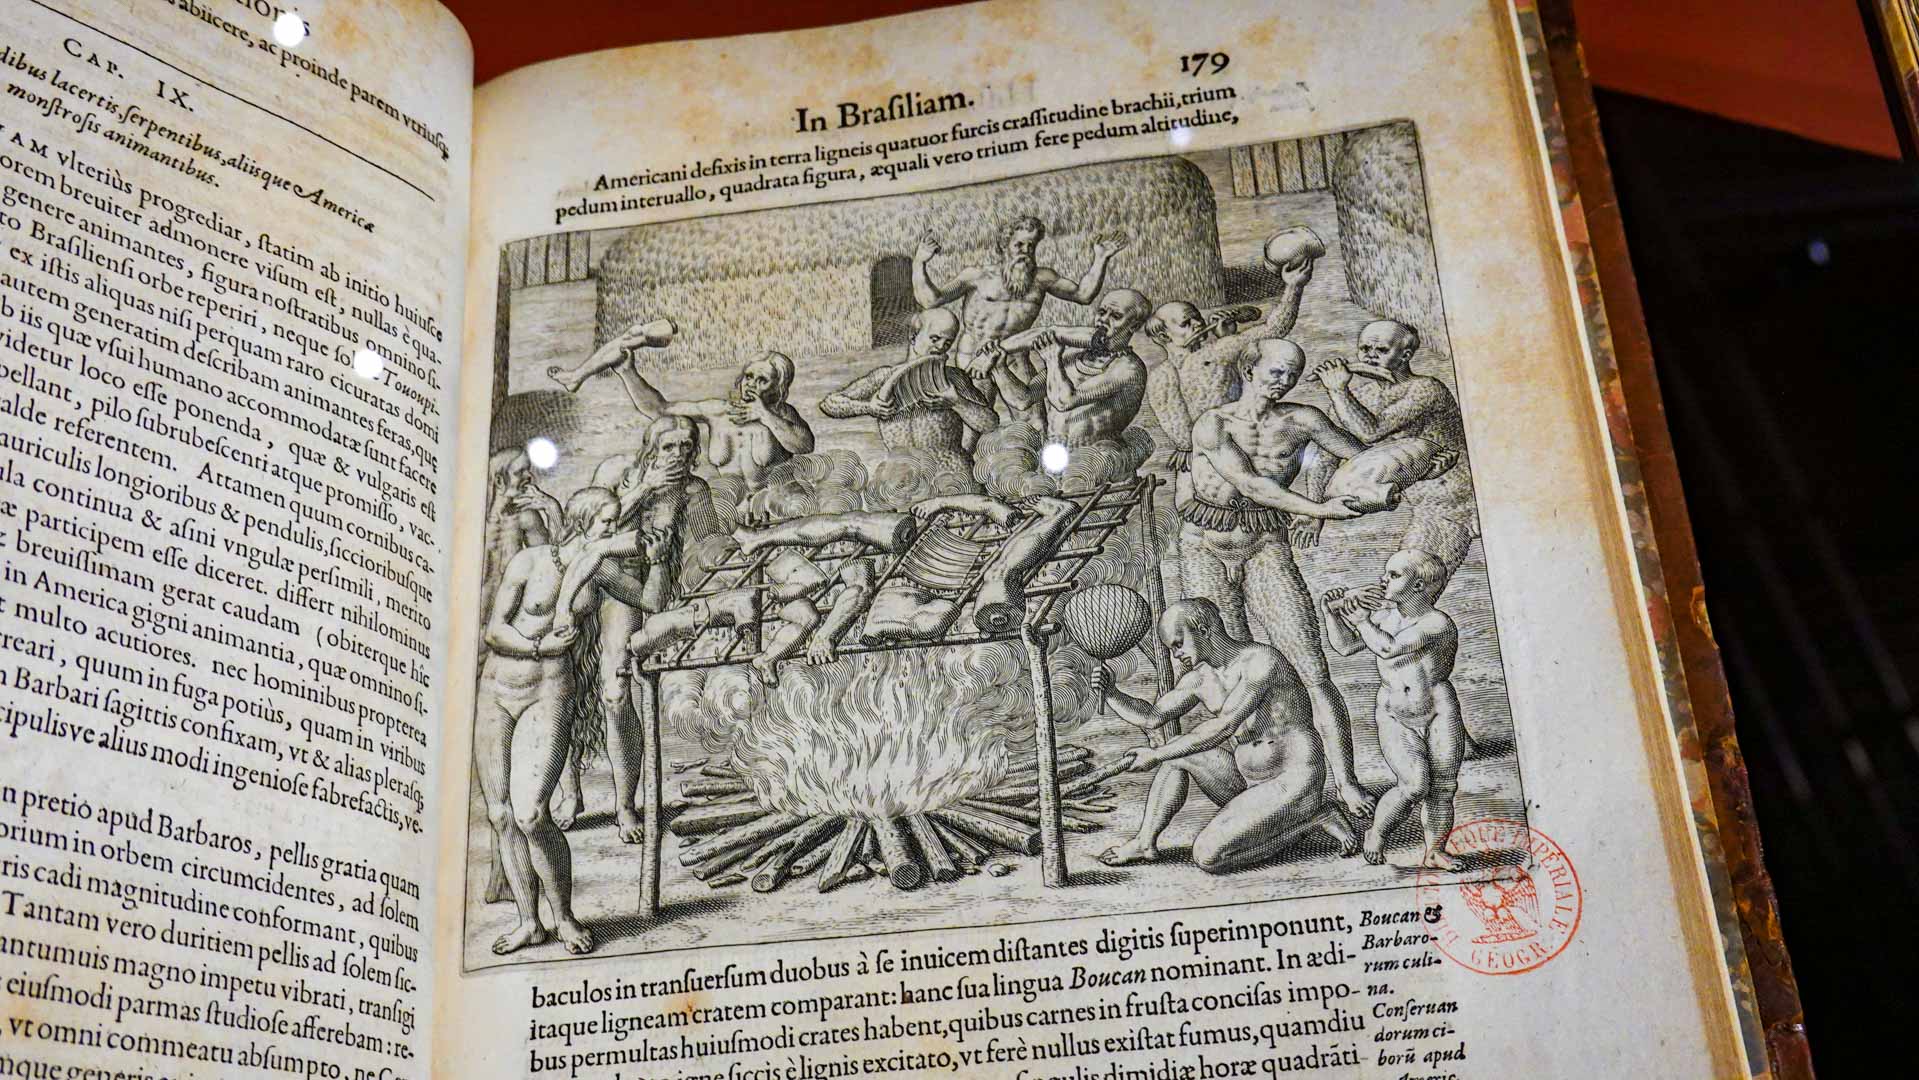 abiicere, ac proinde parem vtriusq;
CAP. IX.
dibus lacertis, serpentibus, aliisque Americæ
monstrosis animantibus.
AM vlteriùs progrediar, statim ab initio huiusce
orem breuiter admonere visum est, nullas è qua-
genere animantes, figura nostratibus omnino si-
to Brasiliensi orbe reperiri, neque
ex istis aliquas nisi perquam raro cicuratas domi
autem generatim describam animantes feras, quę
b iis quæ vsui humano accommodatæ sunt facere
videtur loco esse ponenda, quæ & vulgaris est
pellant, pilo subrubescenti atque promisso, vac-
alde referentem. Attamen quum cornibus ca-
auriculis longioribus & pendulis, siccioribusque
la continua & asini vngulæ persimili, merito
æ participem esse diceret. differt nihilominus
breuissimam gerat caudam (obiterque hîc
in America gigni animantia, quæ omnino si-
multo acutiores. nec hominibus propterea
rreari, quum in fuga potiùs, quam in viribus
Barbari sagittis confixam, vt & alias plerasq;
cipulisve alius modi ingeniose fabrefactis, ve-
n pretio apud Barbaros, pellis gratia quam
orium in orbem circumcidentes, ad solem
ris cadi magnitudine conformant, quibus
Tantam vero duritiem pellis ad solem sic-
antumuis magno impetu vibrati, transigi
eiusmodi parmas studiose afferebam: re-
, vt omni commeatu absumpto, ne
mque generis
179
In Brasiliam.
Americani defixis in terra ligneis quatuor furcis crassitudine brachii, trium
pedum interuallo, quadrata figura, æquali vero trium fere pedum altitudine,
baculos in transuersum duobus à se inuicem distantes digitis superimponunt,
itaque ligneam cratem comparant: hanc sua lingua Boucan nominant. In ædi-
bus permultas huiusmodi crates habent, quibus carnes in frusta concisas impo-
igne siccis è lignis excitato, vt ferè nullus existat fumus, quamdiu
singulis dimidiæ horæ quadrāti-
Boucan &
Barbaro-
rum culi-
na.
Conseruan
dorum ci-
borũ apud
Americ.
BIBLIOTHEQUE IMPÉRIALE
GEOGR.